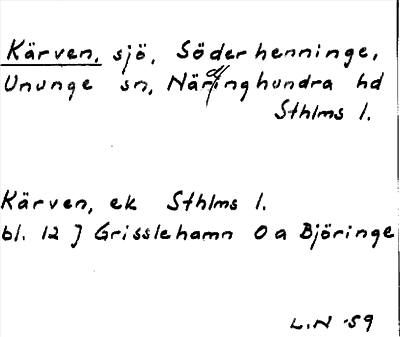 Kärven, sjö, Söderhenninge,
Ununge sn, Närdinghundra hd
Sthlms l.
Kärven, ek Sthlms l.
bl. 12 J Grisslehamn Oa Björinge
L.N -59